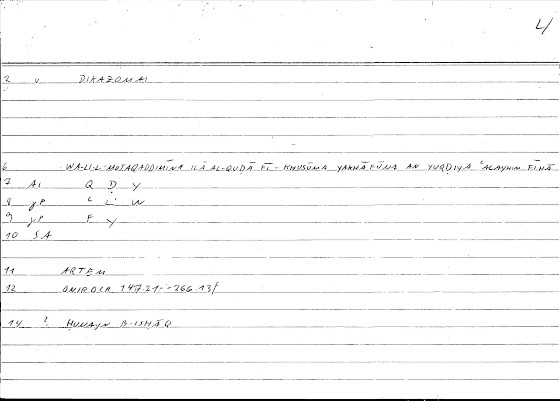 4/
2 v DIKAZOMAI
6 WA-LI-L-MUTAQADDIMĪNA ILĀ AL-QUḌĀ FĪ-KHUṢŪMA YAKHĀFŪNA AN YUQḌIYA ʿALAYHIM FĪHĀ
7 A1 Q Ḍ Y
8 gP ʿ L W
9 gP F Y
10 SA
11 ARTEM
12 ONIROCR 147.21 - 266 13f
14 ? ḤUNAYN B-ISḤĀQ